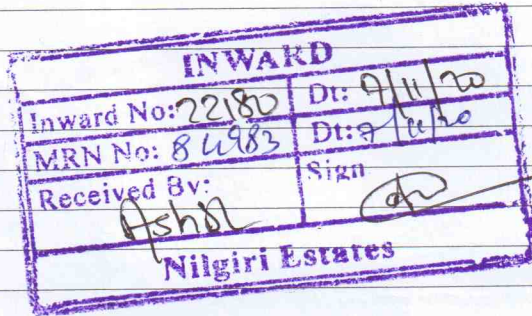 INWARD
Inward No: 22180 Dt: 7/11/20
MRN No: 84983 Dt: 7/11/20
Received By: Sign
Ashok
Nilgiri Estates